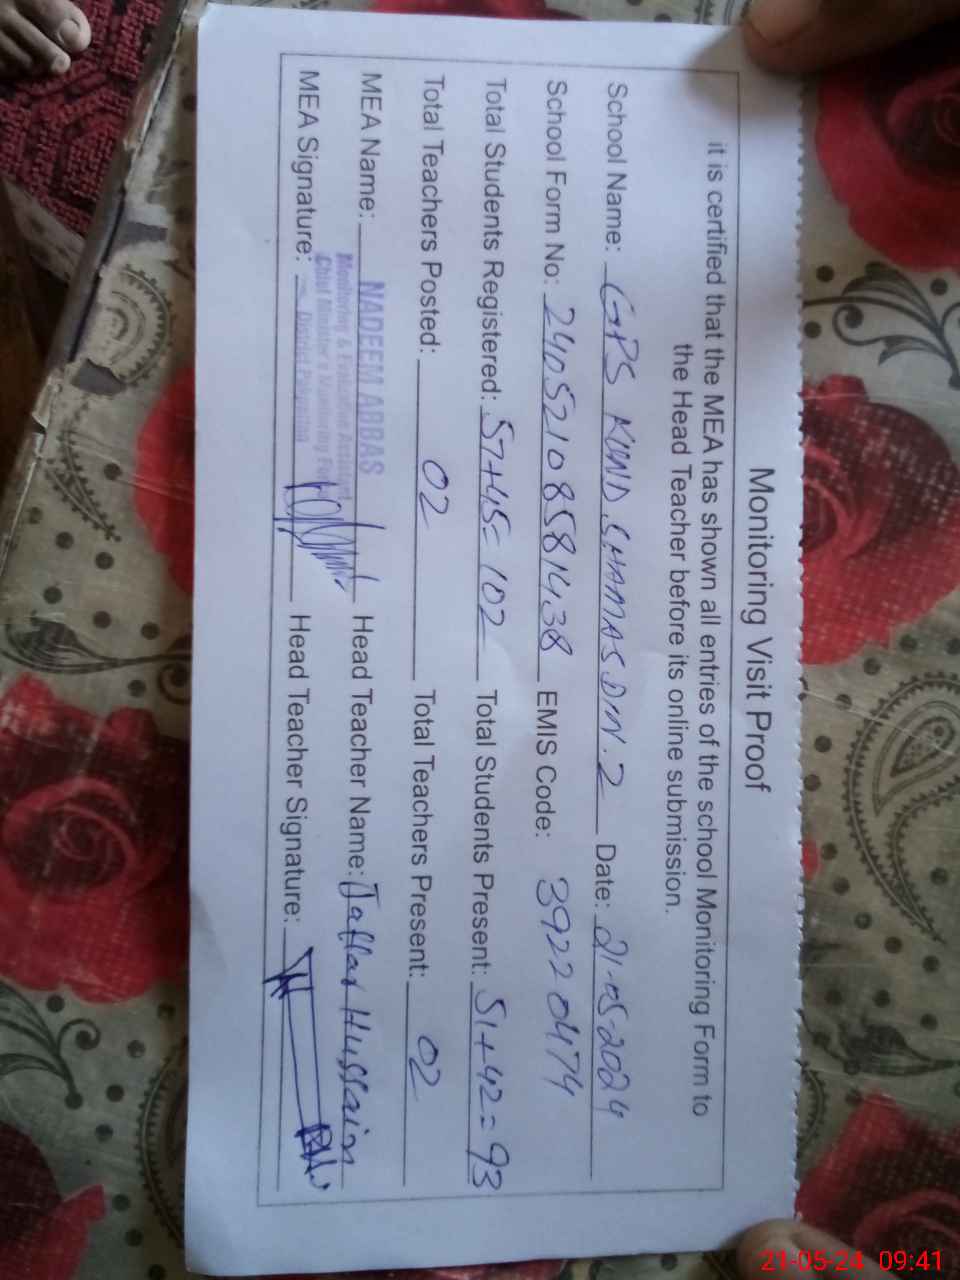 Monitoring Visit Proof
it is certified that the MEA has shown all entries of the school Monitoring Form to
the Head Teacher before its online submission.
School Name: GPS KUND. SHAMAS DIN. 2 Date: 21-05-2024
School Form No: 2405210858 1438 EMIS Code: 39220474
Total Students Registered: 57+45= 102 Total Students Present: 51+42=93
Total Teachers Posted: 02 Total Teachers Present: 02
MEA Name: NADEEM ABBAS Head Teacher Name: Jaffar Hussain
Monitoring & Evaluation Assistant
Chief Minister's Monitoring Force
MEA Signature: District Head Teacher Signature:
21-05-24 09:41